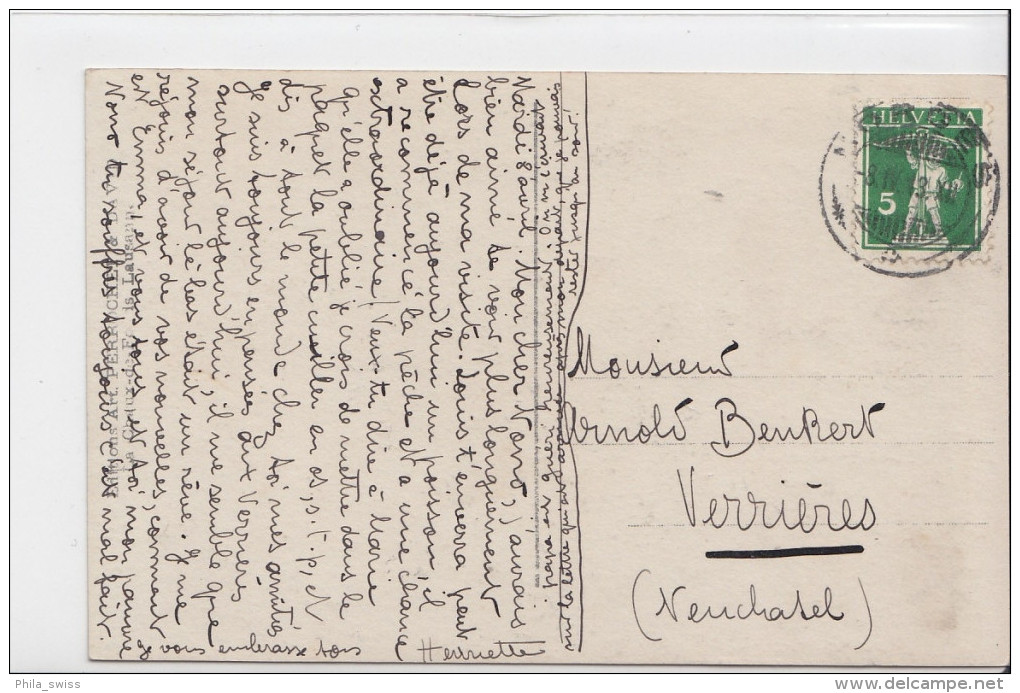 Mardi 8 avril. Mon cher Nono, j'aurais
bien aimé te voir plus longuement
lors de ma visite. Louis t'enverra peut
être déjà aujourd'hui un poisson, il
a recommencé la pêche et a une chance
extraordinaire! Veux-tu dire à Marie
qu'elle a oublié je crois de mettre dans le
paquet la petite cuiller en os, s.t.p., et
dis à tout le monde chez toi mes amitiés
Je suis toujours en pensées aux Verrières
surtout aujourd'hui, il me semble que
mon séjour là-bas était un rêve. Je me
réjouis d'avoir de vos nouvelles, comment
est Emma, et vous tous et toi mon pauvre
Nono tu souffres toujours
je vous embrasse tous
Henriette
papa es guéri heureusement.
sur la lettre qui
reste jusqu'au soir.
Lausanne.
HELVETIA
5
Monsieur
Arnold Benkert
Verrières
(Neuchatel)
Phila_swiss
delcampe.net